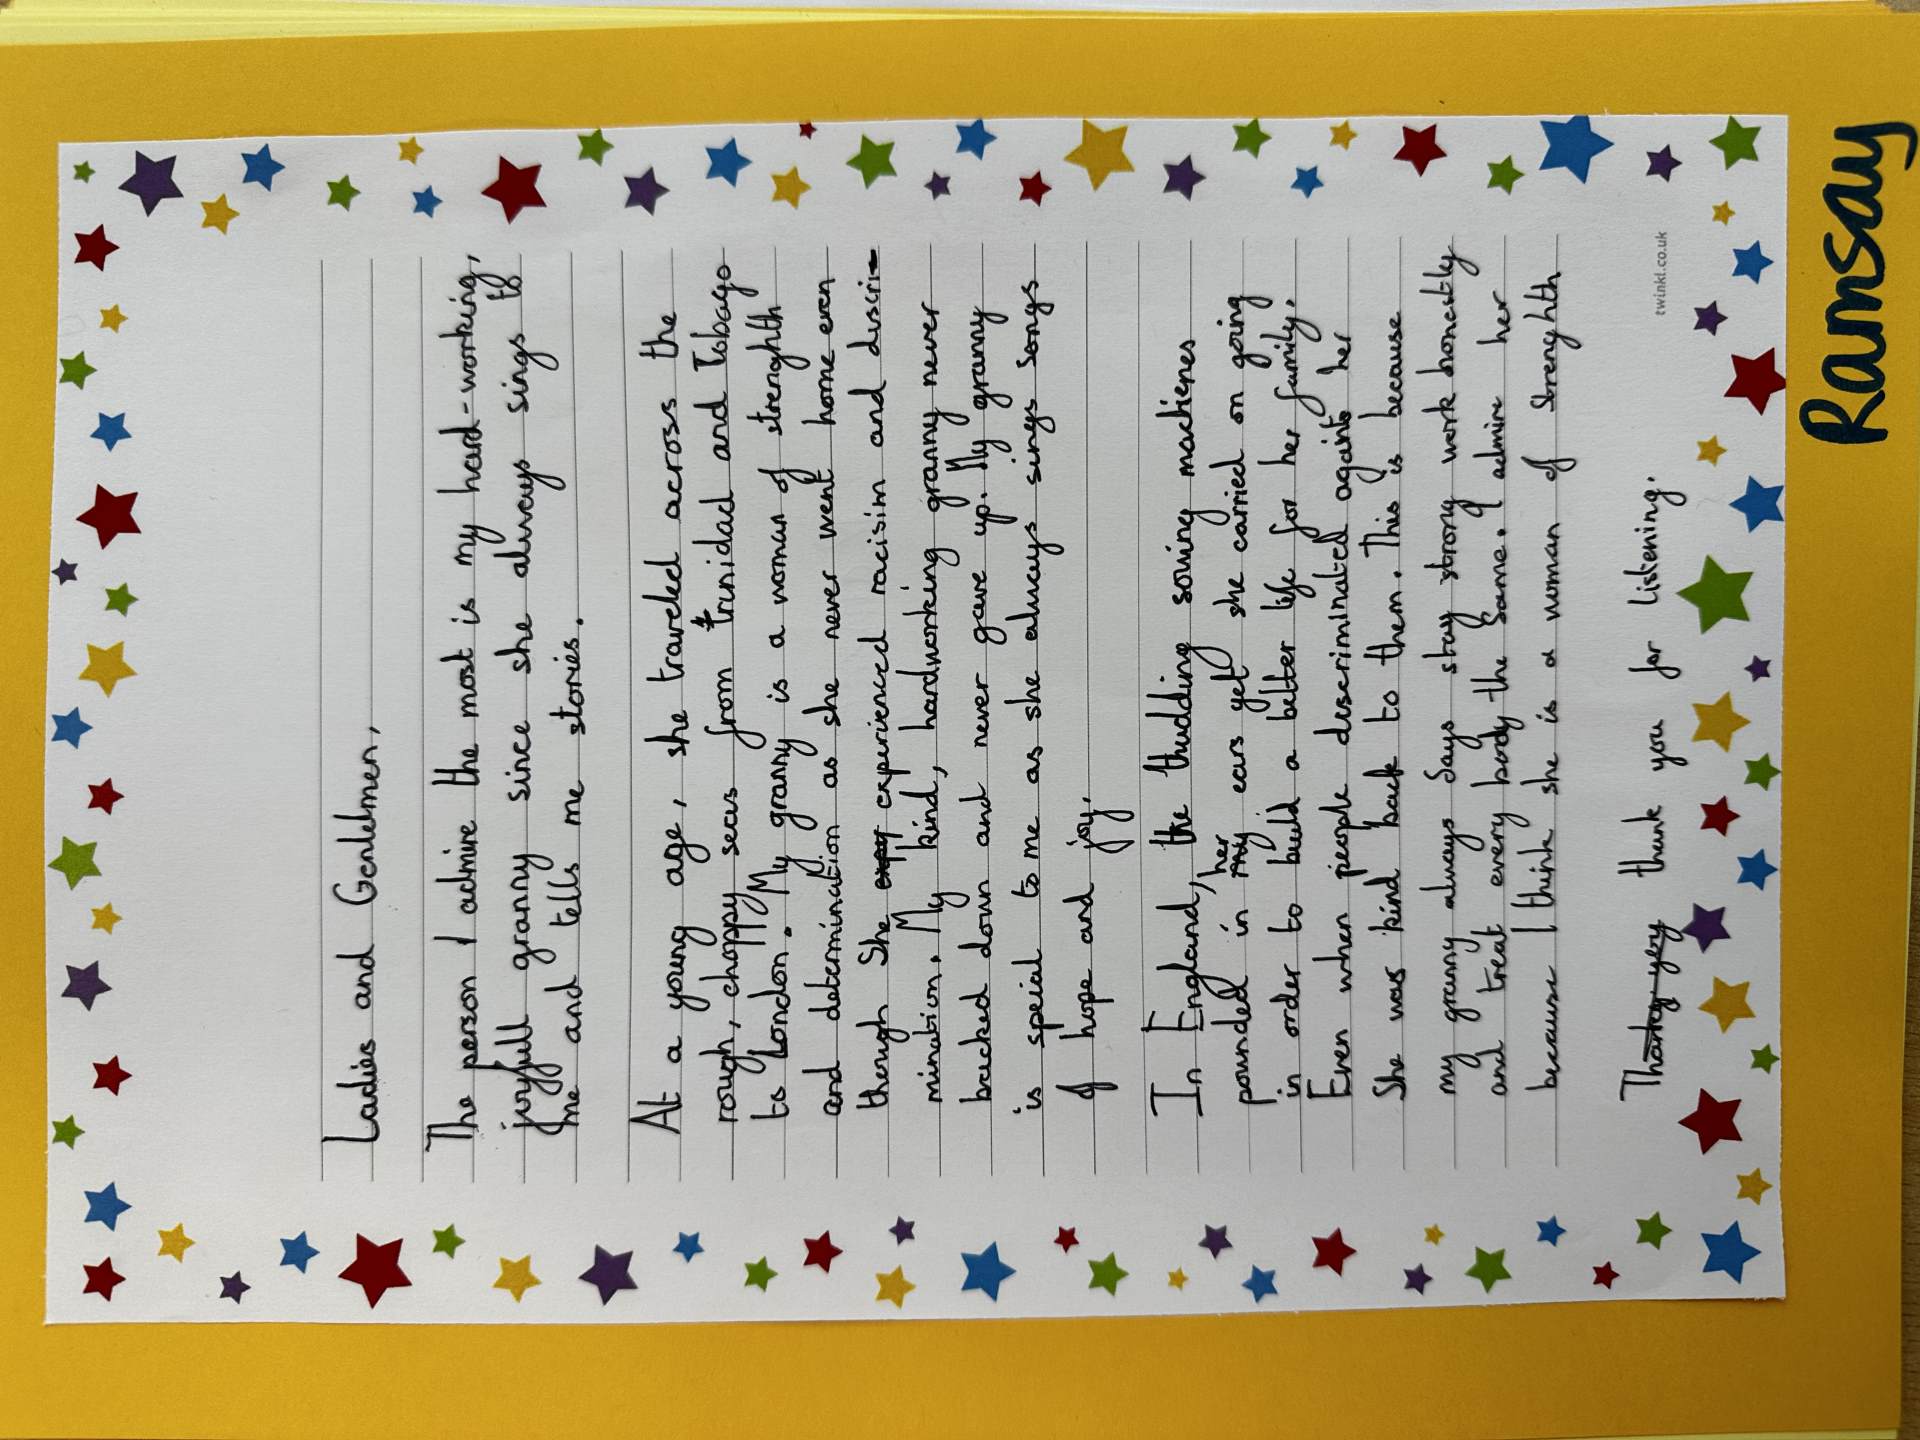 Ladies and Gentelmen,
The person I admire the most is my hard-working,
joyfull granny since she always sings to
me and tells me stories.
At a young age, she traveled across the
rough, choppy seas from trinidad and Tobago
to London. My granny is a woman of strenghth
and determination as she never went home even
though She experienced racisim and discri-
mination. My kind, hardworking granny never
backed down and never gave up. My granny
is special to me as she always sings songs
of hope and joy.
In England, the thudding sowing machienes
pounded in her ears yet she carried on going
in order to build a better life for her family.
Even when people descriminated againts her
She was kind back to them. This is because
my granny always Says stay strong work honestly
and treat every body the Same. I admire her
because I think she is a woman of Strenghth
thank you for listening.
twinkl.co.uk
Ramsay